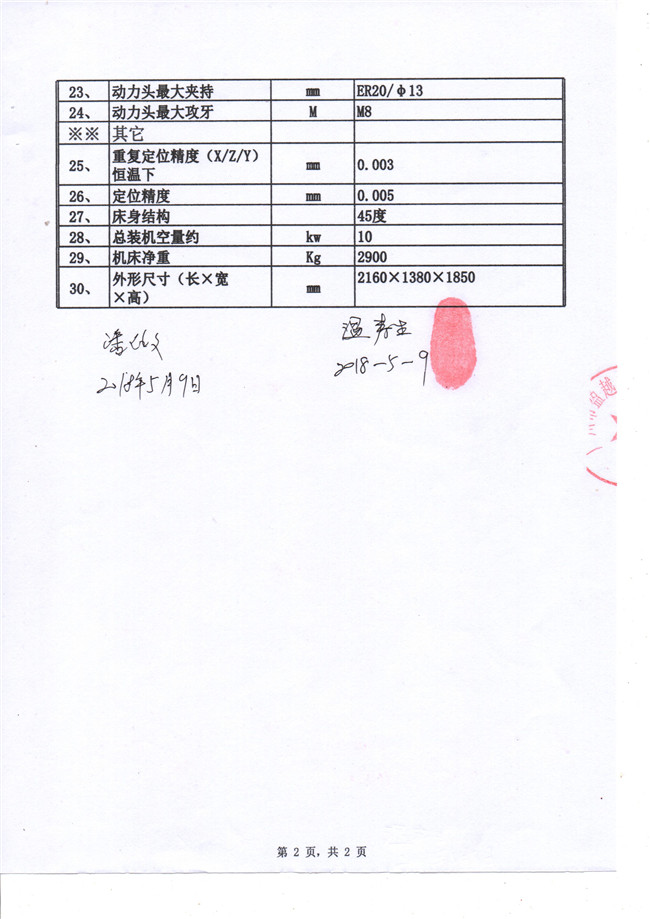 23、 动力头最大夹持 mm ER20/φ13
24、 动力头最大攻牙 M M8
※※ 其它
25、 重复定位精度（X/Z/Y） mm 0.003
恒温下
26、 定位精度 mm 0.005
27、 床身结构 45度
28、 总装机空量约 kw 10
29、 机床净重 Kg 2900
30、 外形尺寸（长×宽 mm 2160×1380×1850
×高）
2018年5月9日
2018-5-9
第 2 页，共 2 页